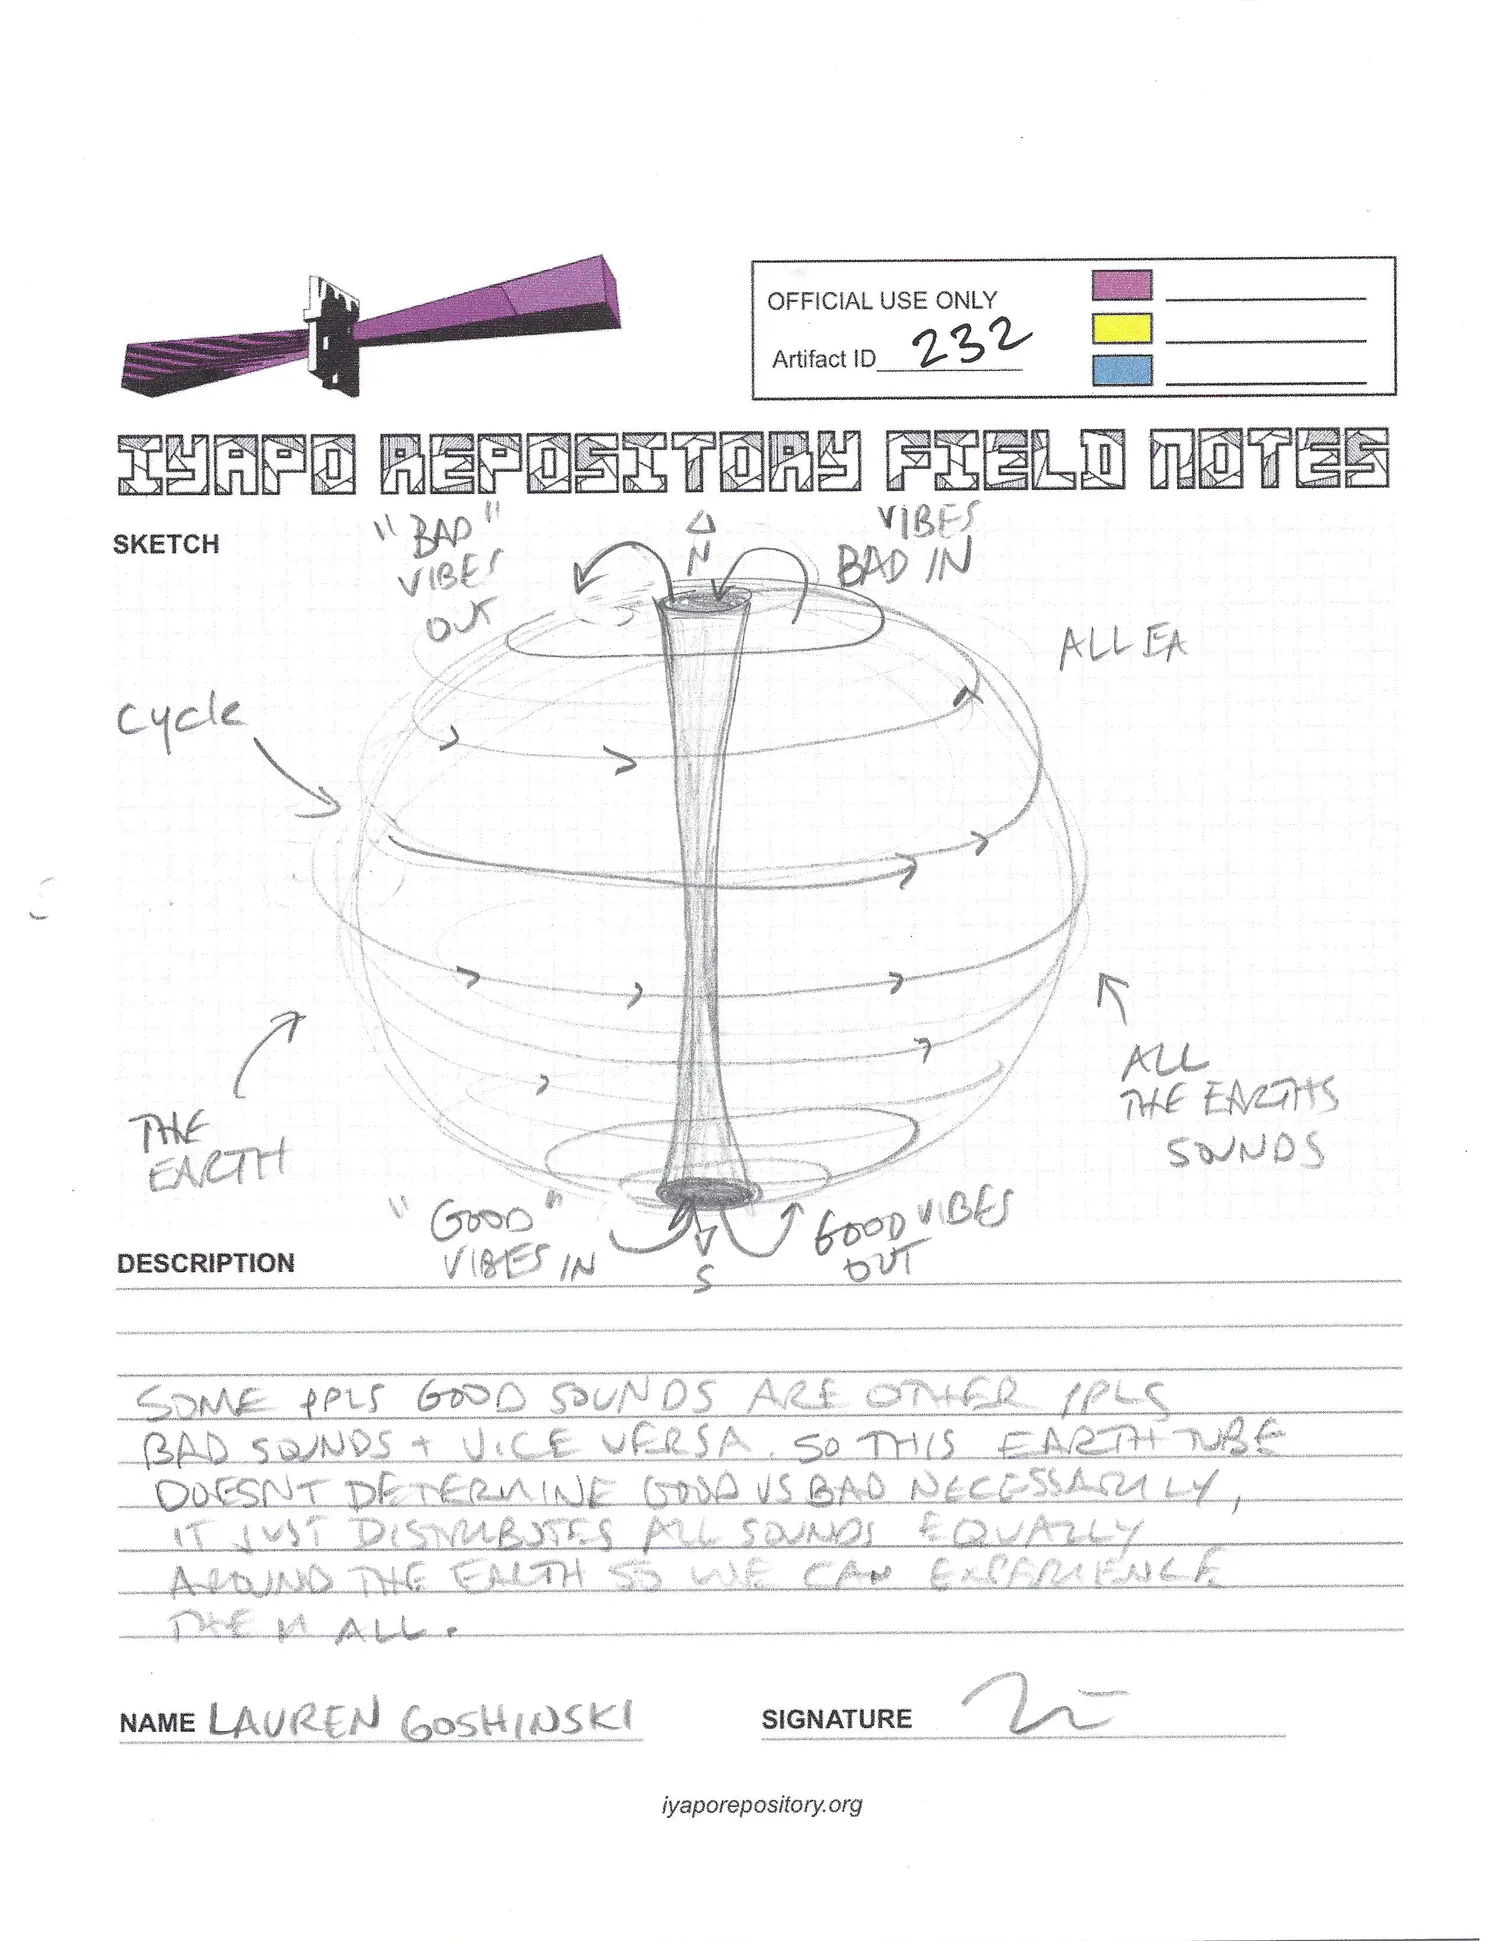 OFFICIAL USE ONLY
Artifact ID 232
IYAPO REPOSITORY FIELD NOTES
SKETCH
"BAD"
VIBES
OUT
N
VIBES
BAD IN
ALL EA
Cycle
THE
EARTH
ALL
THE EARTHS
SOUNDS
"GOOD"
VIBES IN
S
GOOD VIBES
OUT
DESCRIPTION
SOME PPLS GOOD SOUNDS ARE OTHER PPLS
BAD SOUNDS + VICE VERSA. SO THIS EARTH TUBE
DOESNT DETERMINE GOOD VS BAD NECESSARILY,
IT JUST DISTRIBUTES ALL SOUNDS EQUALLY
AROUND THE EARTH SO WE CAN EXPERIENCE
THEM ALL.
NAME LAUREN GOSHINSKI
SIGNATURE
iyaporepository.org